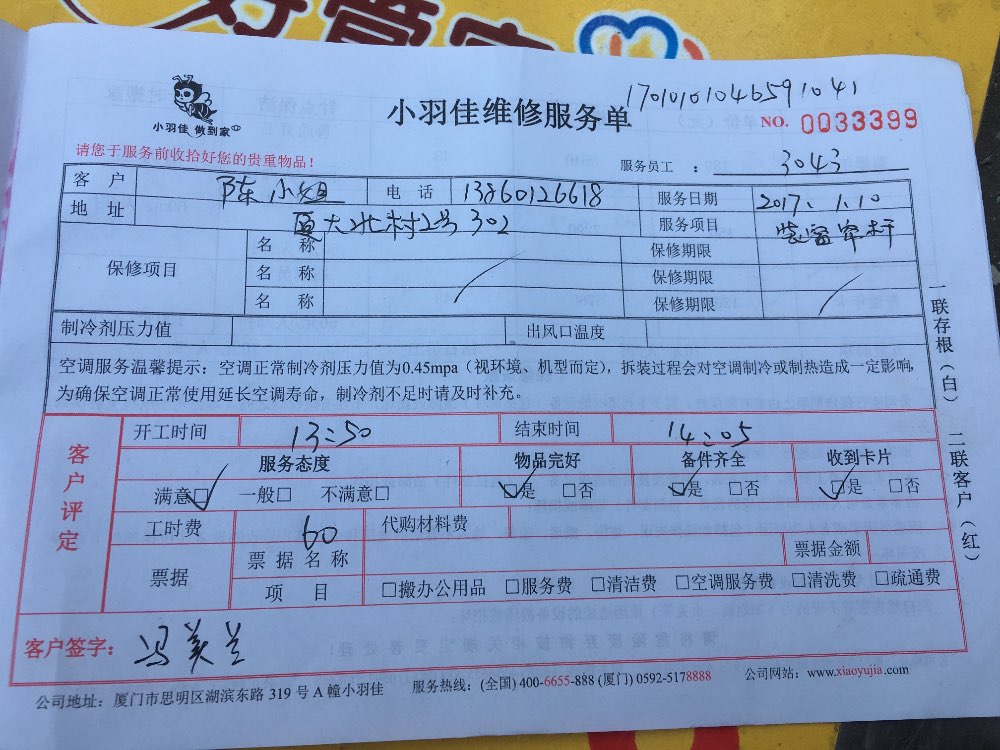 小羽佳 做到家
小羽佳维修服务单
1701010104659 1041
NO. 0033399
请您于服务前收拾好您的贵重物品！
服务员工 ： 3043
客 户 陈小姐 电 话 13860126618 服务日期 2017.1.10
地 址 厦大北村2号302 服务项目 装窗帘杆
保修项目 名 称 保修期限
名 称 保修期限
名 称 保修期限
制冷剂压力值 出风口温度
空调服务温馨提示：空调正常制冷剂压力值为0.45mpa（视环境、机型而定），拆装过程会对空调制冷或制热造成一定影响，
为确保空调正常使用延长空调寿命，制冷剂不足时请及时补充。
一联存根（白） 二联客户（红）
客户评定
开工时间 13:50 结束时间 14:05
服务态度 物品完好 备件齐全 收到卡片
满意☑ 一般□ 不满意□ ☑是 □否 ☑是 □否 ☑是 □否
工时费 60 代购材料费
票据 票据名称 票据金额
项 目 □搬办公用品 □服务费 □清洁费 □空调服务费 □清洗费 □疏通费
客户签字： 冯美兰
公司地址：厦门市思明区湖滨东路 319 号 A 幢小羽佳 服务热线：(全国) 400-6655-888 (厦门) 0592-5178888 公司网站：www.xiaoyujia.com